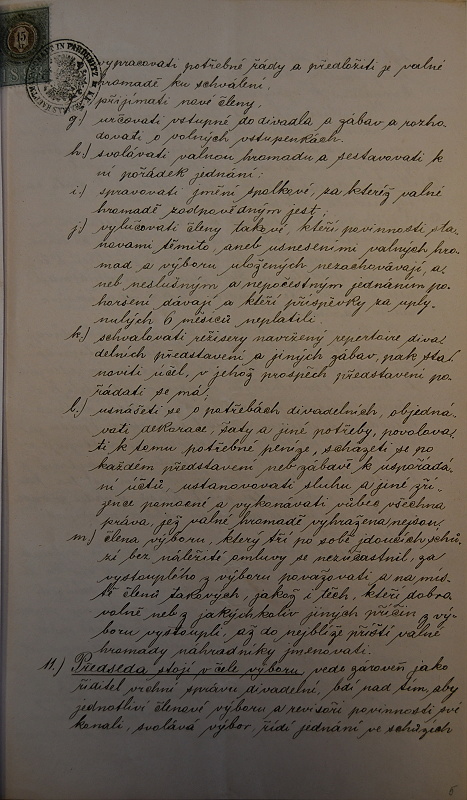 15
vypracovati potřebné řády a předložiti je valné
hromadě ku schválení;
přijímati nové členy,
g.) určovati vstupné do divadla a zábav a rozho-
dovati o volných vstupenkách.
h.) svolávati valnou hromadu a sestavovati k
ní pořádek jednání;
i.) spravovati jmění spolkové, za kteréž valné
hromadě zodpovědným jest;
j.) vylučovati členy takové, kteří povinností sta-
novami těmito, aneb usneseními valných hro-
mad a výboru uložených nezachovávají, a-
neb neslušným a nepočestným jednáním po-
horšení dávají a kteří příspěvky za uply-
nulých 6 měsíců neplatili.
k.) schvalovati režisery navržený repertoire diva-
delních představení a jiných zábav, pak sta-
noviti účel, v jehož prospěch představení po-
řádati se má,
l.) usnášeti se o potřebách divadelních, objedná-
vati dekorace, šaty a jiné potřeby, povolova-
ti k tomu potřebné peníze, scházeti se po
každém představení neb zábavě k uspořádá-
ní účtů, ustanovovati sluhu a jiné zří-
zence pomocné a vykonávati vůbec všechna
práva, jež valné hromadě vyhražena nejsou.
m.) člena výboru, který tří po sobě jdoucích schů-
zí bez náležité omluvy se nezúčastnil, za
vystouplého z výboru považovati a na mís-
tě členů takových, jakož i těch, kteří dobro-
volně neb z jakýchkoliv jiných příčin z vý-
boru vystoupli, až do nejblíže příští valné
hromady náhradníky jmenovati.
11.) Předseda stojí v čele výboru, vede zároveň jako
ředitel vrchní správu divadelní, bdí nad tím, aby
jednotliví členové výboru a revisoři povinnosti své
konali, svolává výbor, řídí jednání ve schůzích
5